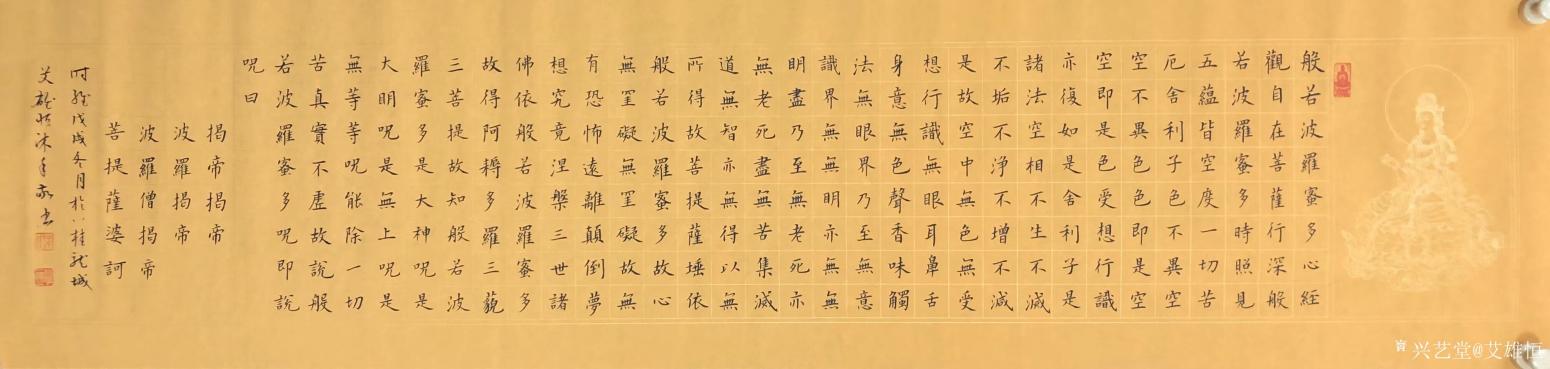 般若波羅蜜多心経
觀自在菩薩行深般
若波羅蜜多時照見
五蘊皆空度一切苦
厄舍利子色不異空
空不異色色即是空
空即是色受想行識
亦復如是舍利子是
諸法空相不生不滅
不垢不淨不增不減
是故空中無色無受
想行識無眼耳鼻舌
身意無色聲香味觸
法無眼界乃至無意
識界無無明亦無無
明盡乃至無老死亦
無老死盡無苦集滅
道無智亦無得以無
所得故菩提薩埵依
般若波羅蜜多故心
無罣礙無罣礙故無
有恐怖遠離顛倒夢
想究竟涅槃三世諸
佛依般若波羅蜜多
故得阿耨多羅三藐
三菩提故知般若波
羅蜜多是大神呪是
大明呪是無上呪是
無等等呪能除一切
苦真實不虛故說般
若波羅蜜多呪即說
呪曰
揭帝揭帝
波羅揭帝
波羅僧揭帝
菩提薩婆訶
时維戊戌冬月於八桂龍城
艾雄恒沐手敬書
兴艺堂@艾雄恒